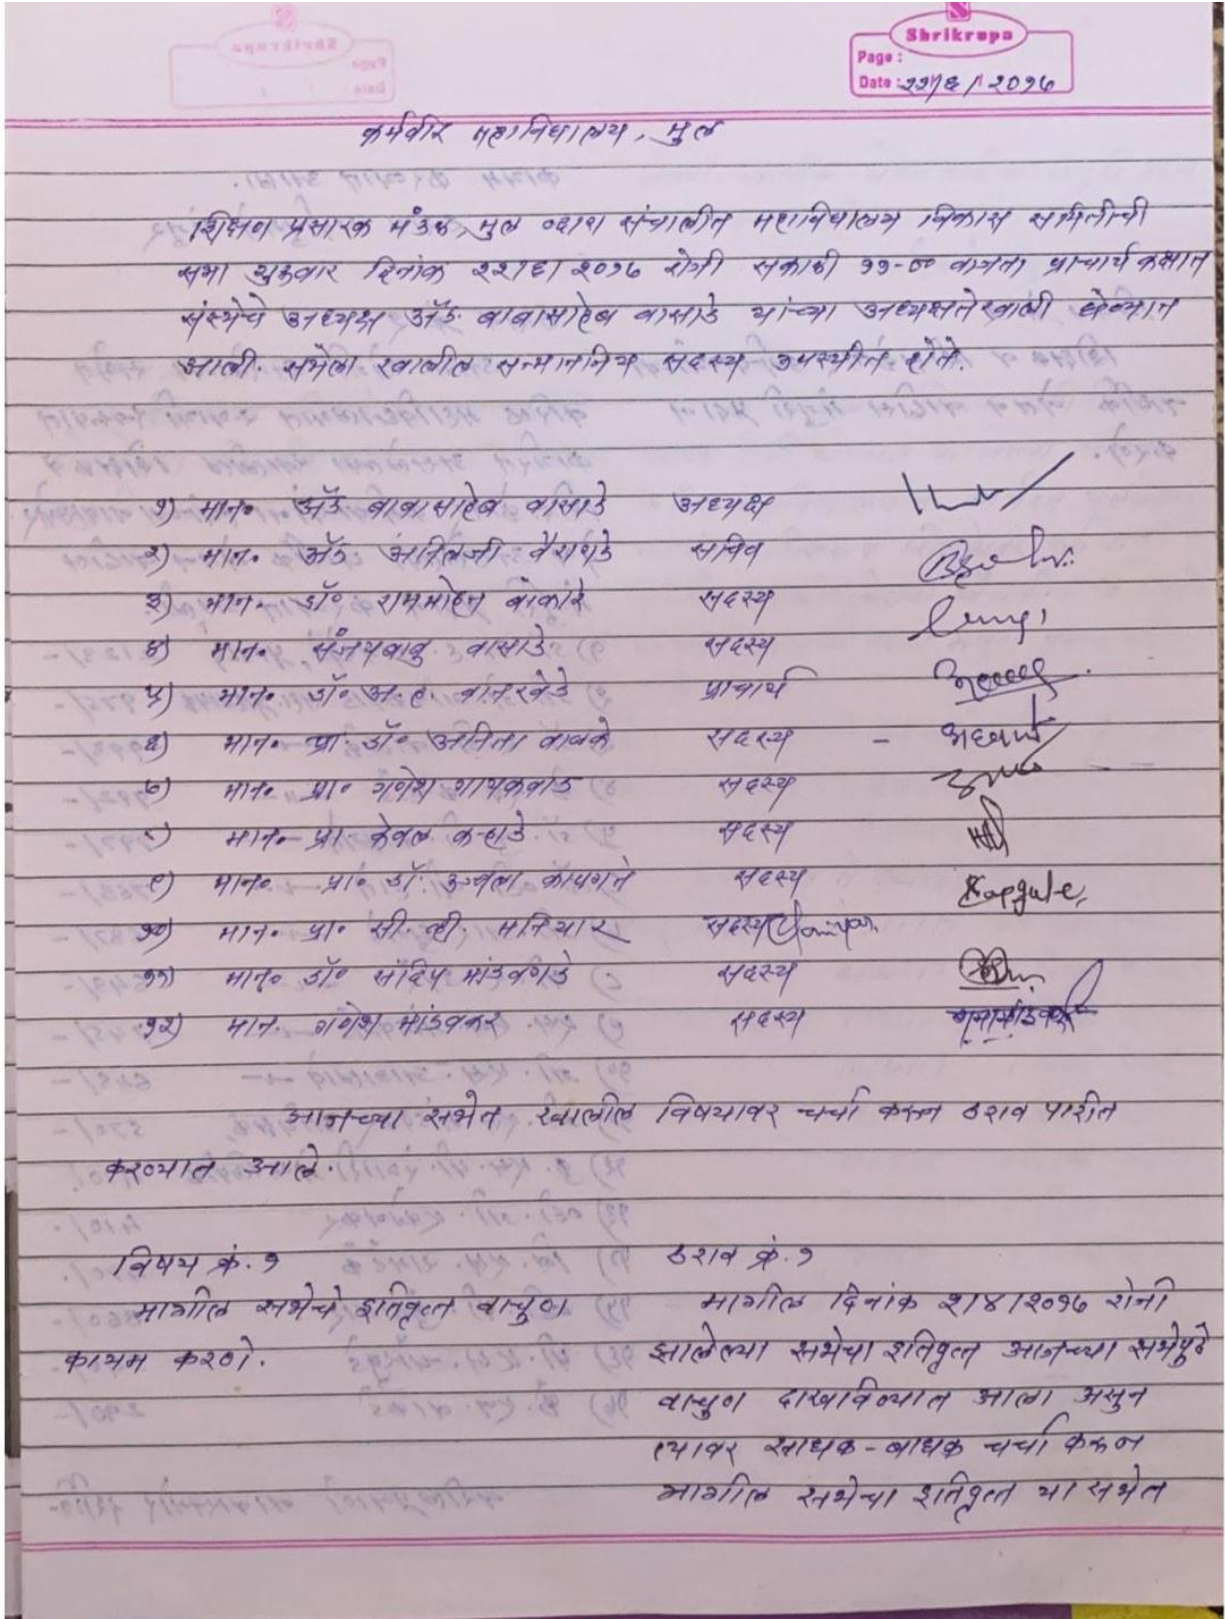 Shrikrupa
Page :
Date : २२/६/२०१८
कर्मवीर महाविद्यालय, मुल
शिक्षण प्रसारक मंडळ, मुल व्दारा संचालीत महाविद्यालय विकास समितीची
सभा शुक्रवार दिनांक २२/६/२०१८ रोजी सकाळी ११-०० वाजता प्राचार्य कक्षात
संस्थेचे अध्यक्ष ॲड. बाबासाहेब वासाडे यांच्या अध्यक्षतेखाली घेण्यात
आली. सभेला खालील सन्माननिय सदस्य उपस्थीत होते.
१) मान. ॲड बाबासाहेब वासाडे अध्यक्ष
२) मान. ॲड अनिलजी वैरागडे सचिव
३) मान. डॉ. राममोहन बोकारे सदस्य
४) मान. संजयबाबु वासाडे सदस्य
५) मान. डॉ. अ. ह. वानखेडे प्राचार्य
६) मान. प्रा. डॉ. अनिता वाळके सदस्य -
७) मान. प्रा. गणेश गायकवाड सदस्य
८) मान. प्रा. केवल कऱ्हाडे सदस्य
९) मान. प्रा. डॉ. उज्वला कापगते सदस्य Kapgate
१०) मान. प्रा. सी. व्ही. मनियार सदस्य Maniyar
११) मान. डॉ. संदिप मांडवगडे सदस्य
१२) मान. गणेश मांडवकर सदस्य
आजच्या सभेत खालील विषयावर चर्चा करून ठराव पारीत
करण्यात आले.
विषय क्रं. १ ठराव क्रं. १
मागील सभेचे इतिवृत्त वाचुण मागील दिनांक २/४/२०१८ रोजी
कायम करणे. झालेल्या सभेचा इतिवृत्त आजच्या सभेपुढे
वाचुण दाखविण्यात आला असुन
त्यावर साधक-बाधक चर्चा करून
मागील सभेचा इतिवृत्त या सभेत